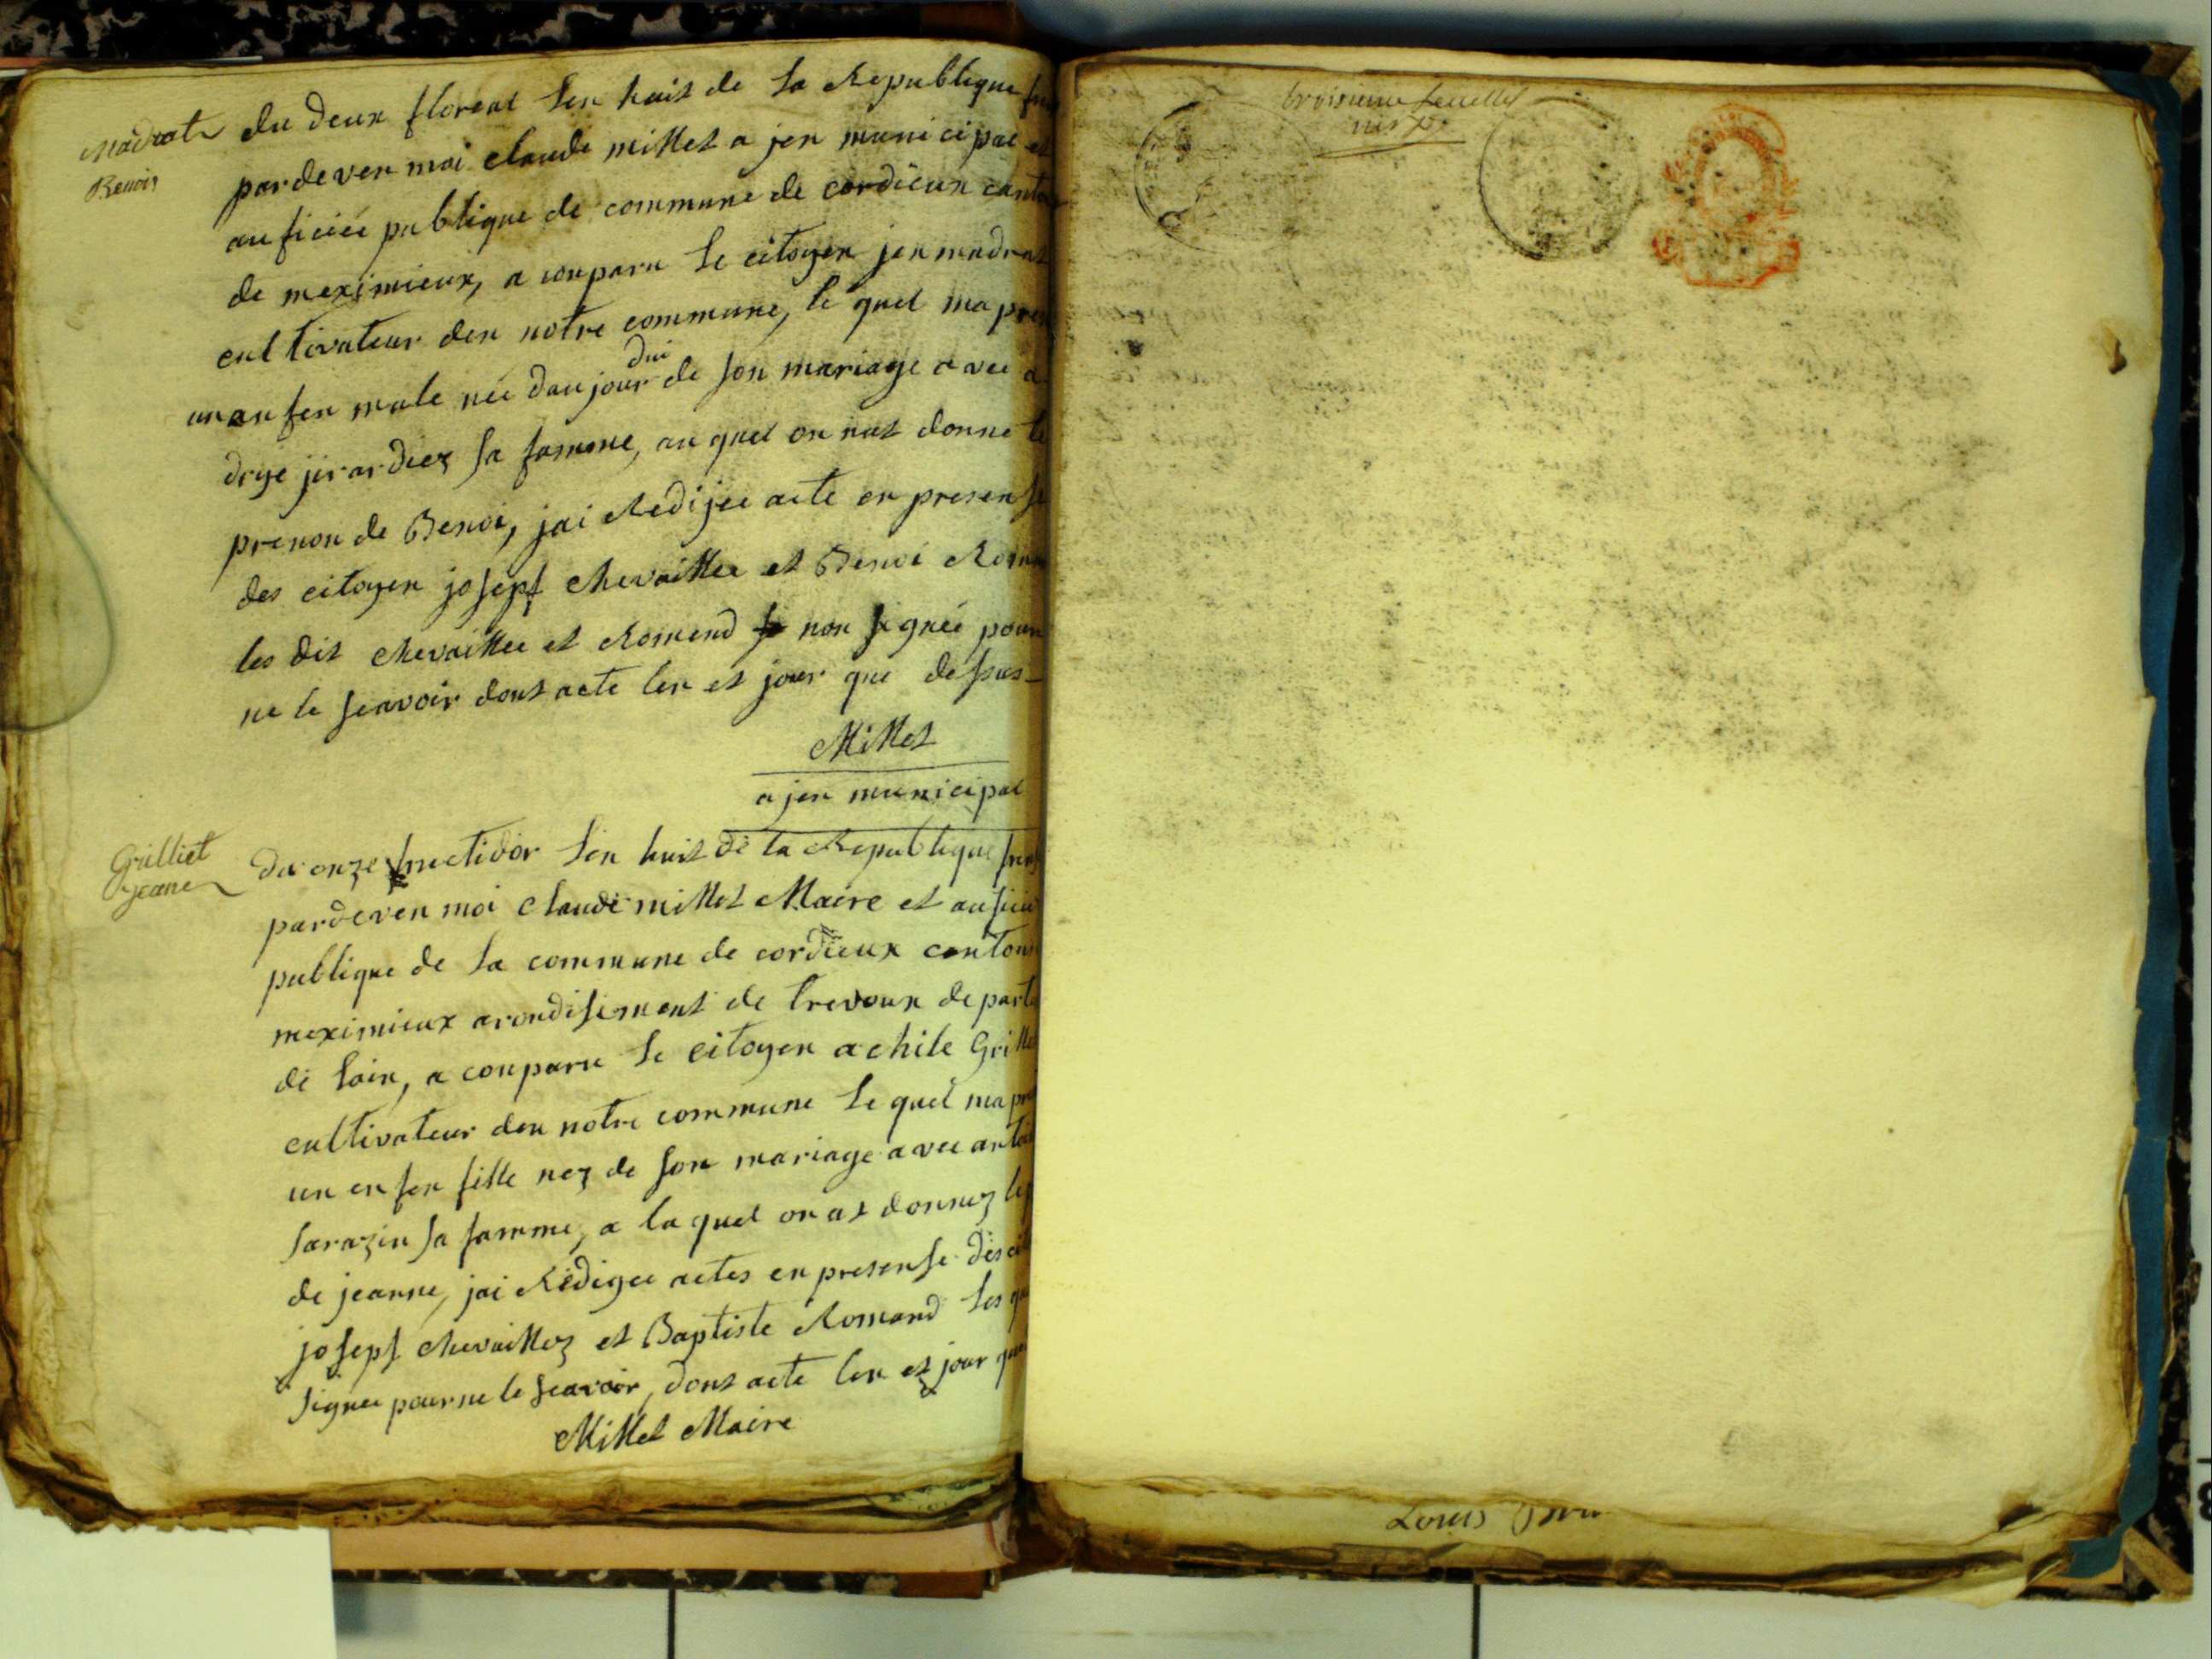 Madrat
Benoit
du deux floreal len huit de la Republique
pardeven moi claude millet a jen municipal et
auficiée publique de commune de cordieux canton
de meximieux, a conparu le citoyen jen madrat
cultivateur den notre commune, le quel ma
un anfen male née daujour dui de son mariage avec
drye jirardiez sa famme, au quel on nat donné le
prenon de Benoi, jai Redijee acte en presense
des citoyen josepf chevaillee et Benoi
les dit chevaillee et Romend non signéé pour
ne le seavoir dont acte len et jour que dessus
Millet
a jen municipal
Grilliet
jeane
du onze fructidor len huit de la Republique
pardeven moi claude millet Maire et
publique de la commune de cordieux canton
meximieux arondisement de trevoux
de lain, a conparu le citoyen achile
cultivateur den notre commune le quel ma
un enfen fille nez de son mariage avec
sarazin sa famme, a laquel on at donnez
de jeanne, jai Rédigee actes en presense des
josepf chevaillez et Baptiste Romand les
signee pour ne le seavoir, dont acte len et jour
Millet Maire
troisieme feuillet
Louis